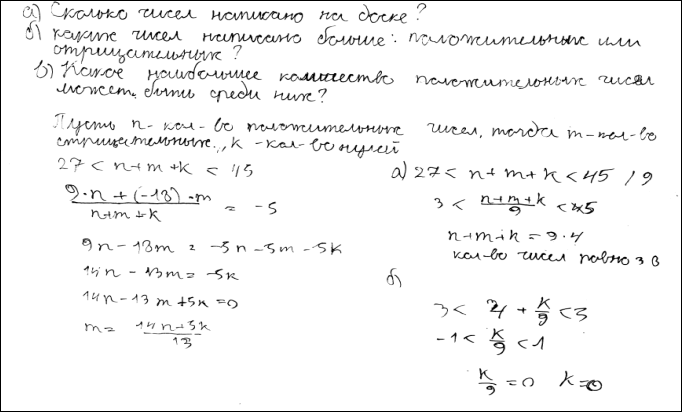 а) Сколько чисел написано на доске?
б) каких чисел написано больше: положительных или
отрицательных?
в) Какое наибольшее количество положительных чисел
может быть среди них?
Пусть n - кол-во положительных чисел, тогда m - кол-во
отрицательных, k - кол-во нулей
27 < n+m+k < 45
(9·n + (-18)·m) / (n+m+k) = -5
9n - 18m = -5n - 5m - 5k
14n - 13m = -5k
14n - 13m + 5k = 0
m = (14n + 5k) / 13
а) 27 < n + m + k < 45 / 9
3 < (n+m+k) / 9 < 5
n+m+k = 9·4
кол-во чисел равно 36
б)
3 < 4 + k/9 < 5
-1 < k/9 < 1
k/9 = 0 k = 0